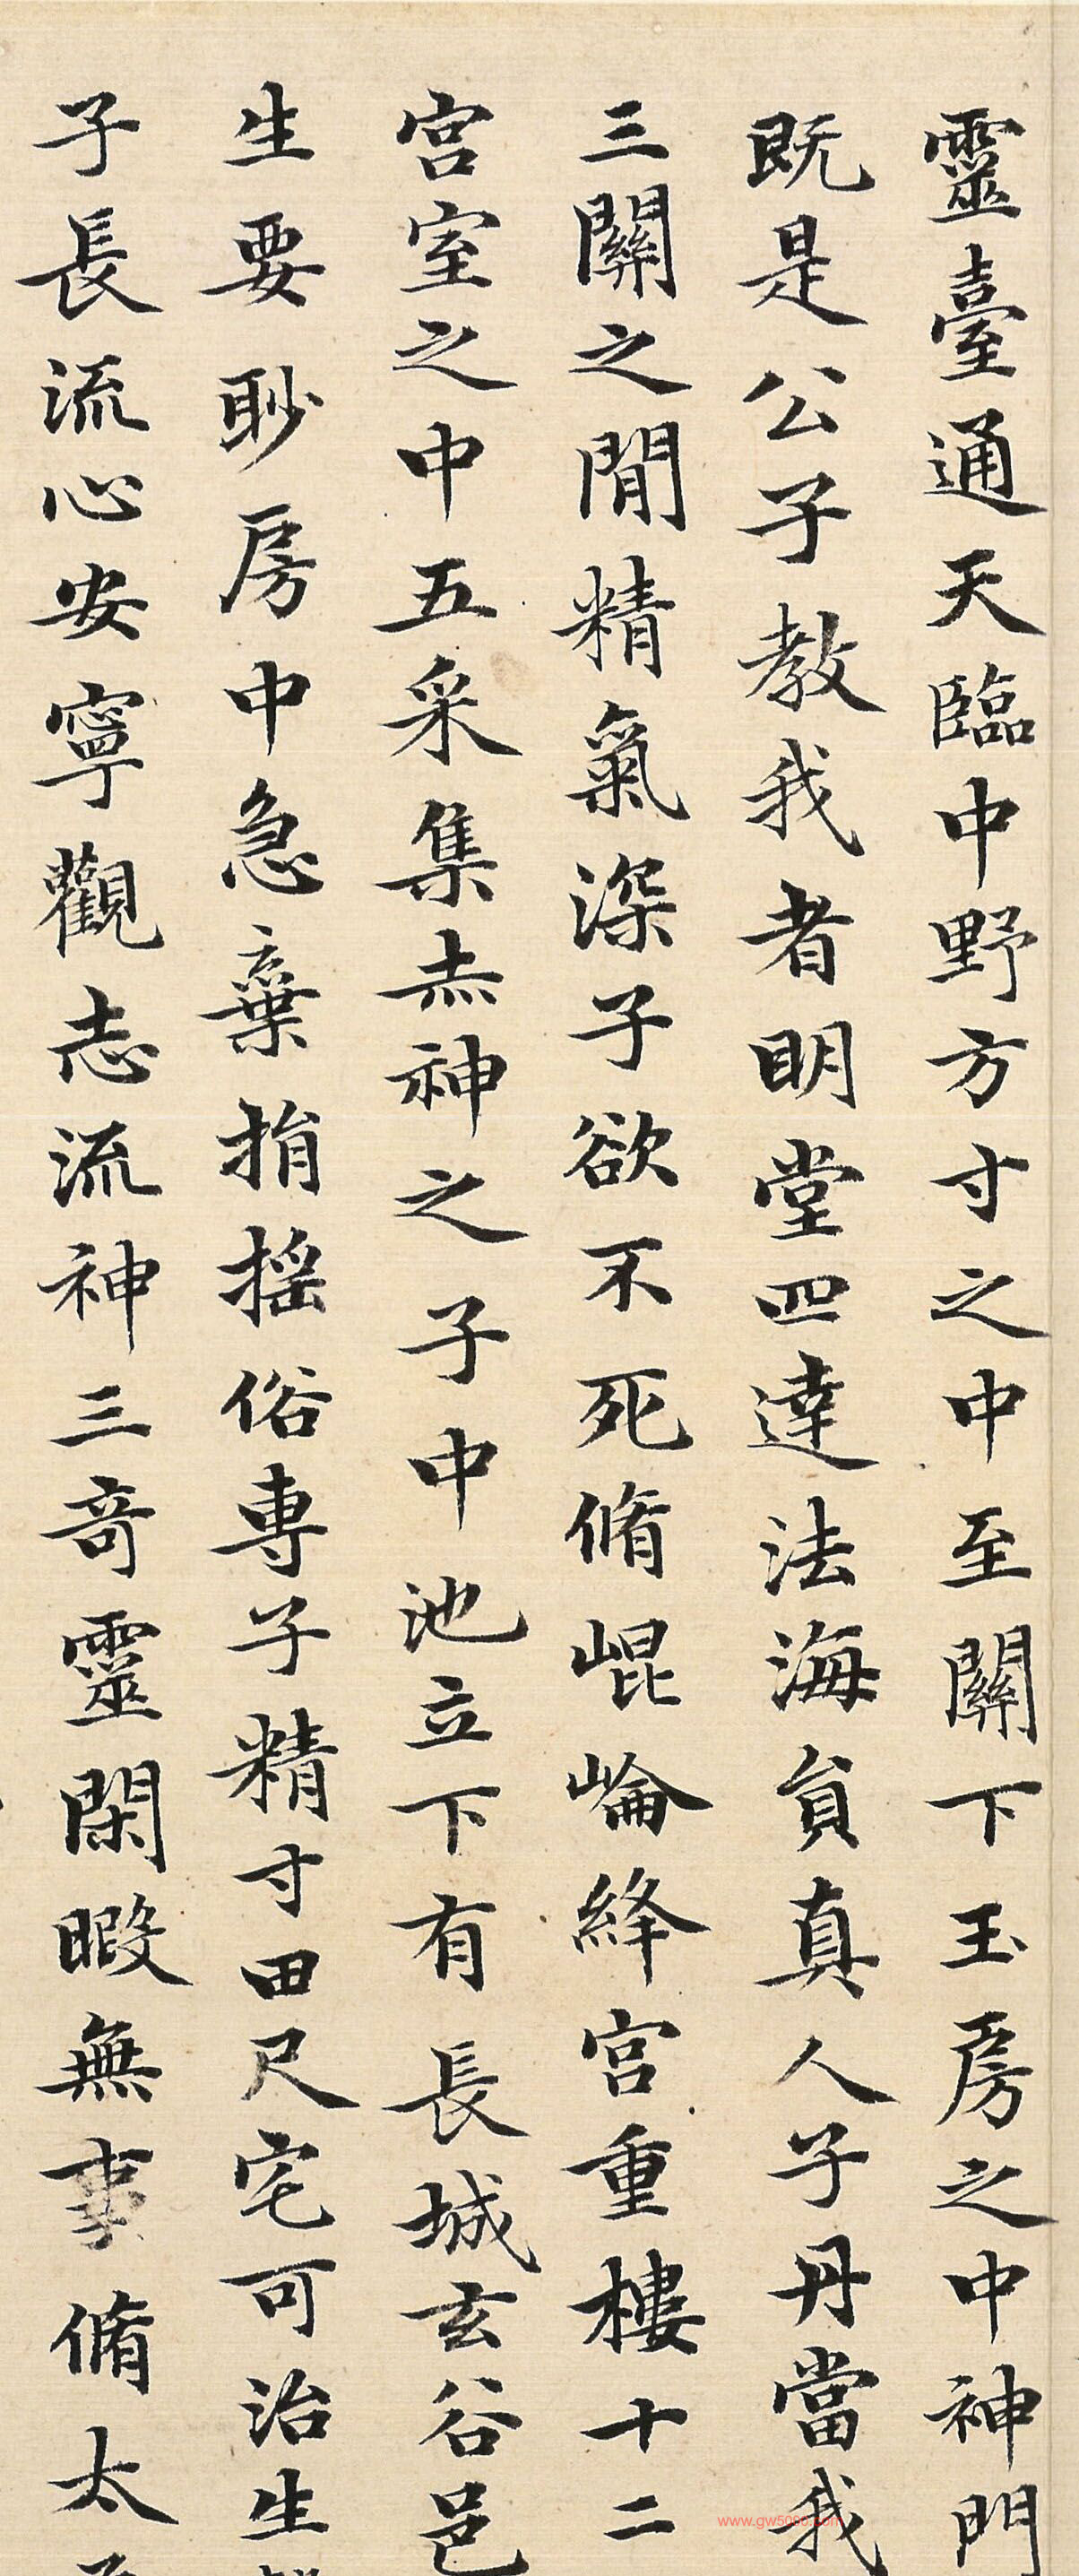 靈臺通天臨中野方寸之中至關下玉房之中神門
既是公子教我者明堂四達法海貟真人子丹當我
三關之閒精氣深子欲不死脩崐崘絳宮重樓十二
宮室之中五采集赤神之子中池立下有長城玄谷邑
生要眇房中急棄捐搖俗專子精寸田尺宅可治生
子長流心安寧觀志流神三奇靈閑暇無事脩太
www.gw5000.com